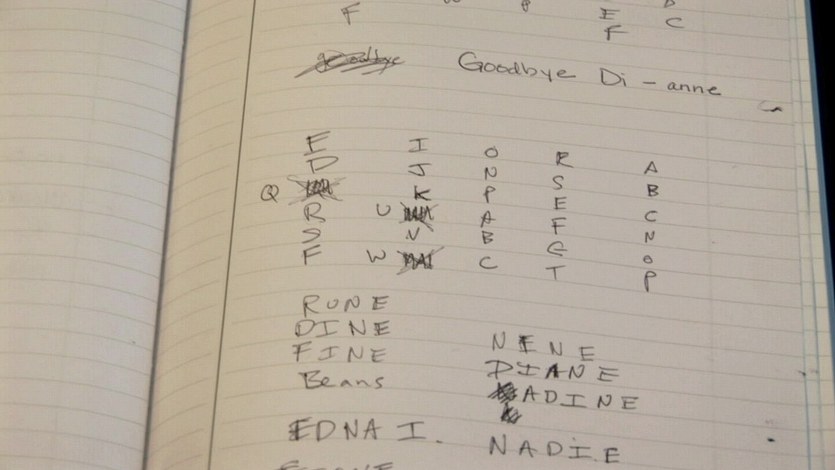 F E C
F
goodbye Goodbye Di-anne
E I O R A
D J N S B
Q K P E C
R U A F N
S V B G O
F W C T P
RUNE
DINE
FINE NENE
Beans DIANE
ADINE
EDNA I. NADIE